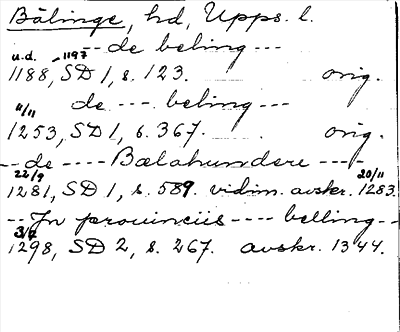 Bälinge, hd, Upps. l.
-- de beling ---
u.d. -1197
1188, SD 1, s. 123. orig.
de --- beling ---
11/11
1253, SD 1, s. 367. orig.
-- de ---- Bælahundere ----
22/9 20/11
1281, SD 1, s. 589. vidim. avskr. 1283.
-- Jn prouinciis ---- belling --
3/2
1298, SD 2, s. 267. avskr. 1344.